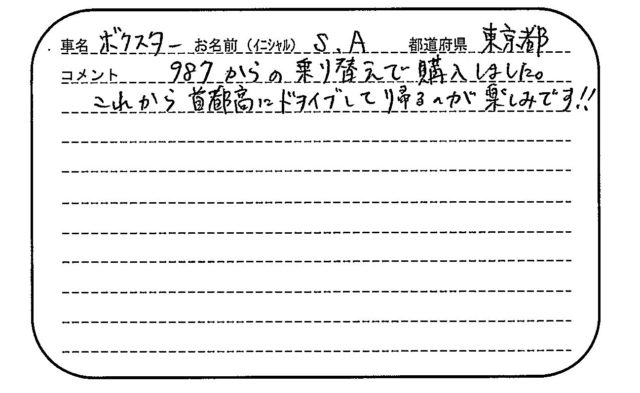 車名 ボクスター お名前（ｲﾆｼｬﾙ） S.A 都道府県 東京都
コメント 987からの乗り替えで購入しました。
これから首都高にドライブして帰るのが楽しみです!!